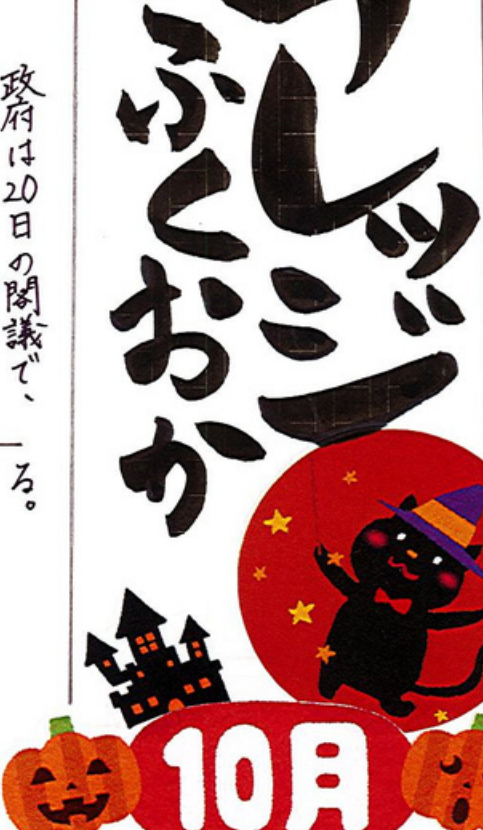 レッジ
ふくおか
政府は20日の閣議で、
る。
10月